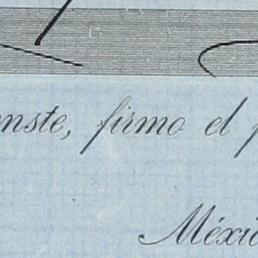 nste, firmo el p
Méxic